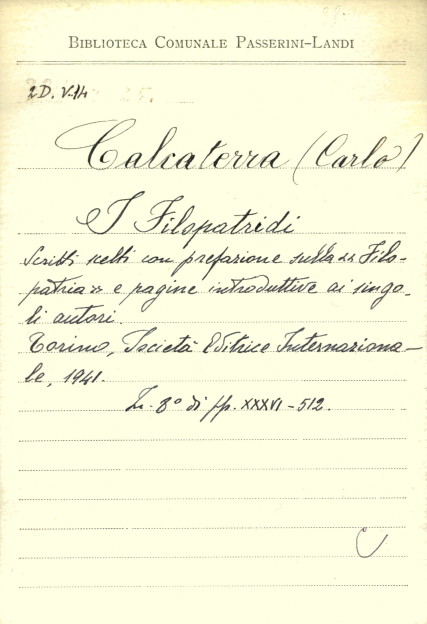 BIBLIOTECA COMUNALE PASSERINI-LANDI
2D. V.14
Calcaterra (Carlo)
I Filopatridi
Scritti scelti con prefazione sulla « Filo-
patria » e pagine introduttive ai singo-
li autori.
Torino, Società Editrice Internaziona-
le, 1941.
In-8º di pp. XXXVI-512.